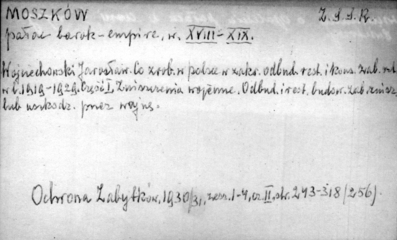 MOSZKÓW Z.S.S.R.
pałac barok-empire, w. XVIII-XIX.
Wojciechowski Jarosław. Co zrob. w polsce w zakr. odbud. rest. i kons. zab. nd
w l. 1919-1929. Część I, Zniszczenia wojenne. Odbud. i rest. budow. zab. znisz.
lub uszkodz. przez wojnę.
Ochrona Zabytków, 1930/31, zesz. 1-4, cz. II, str. 293-318 (256).